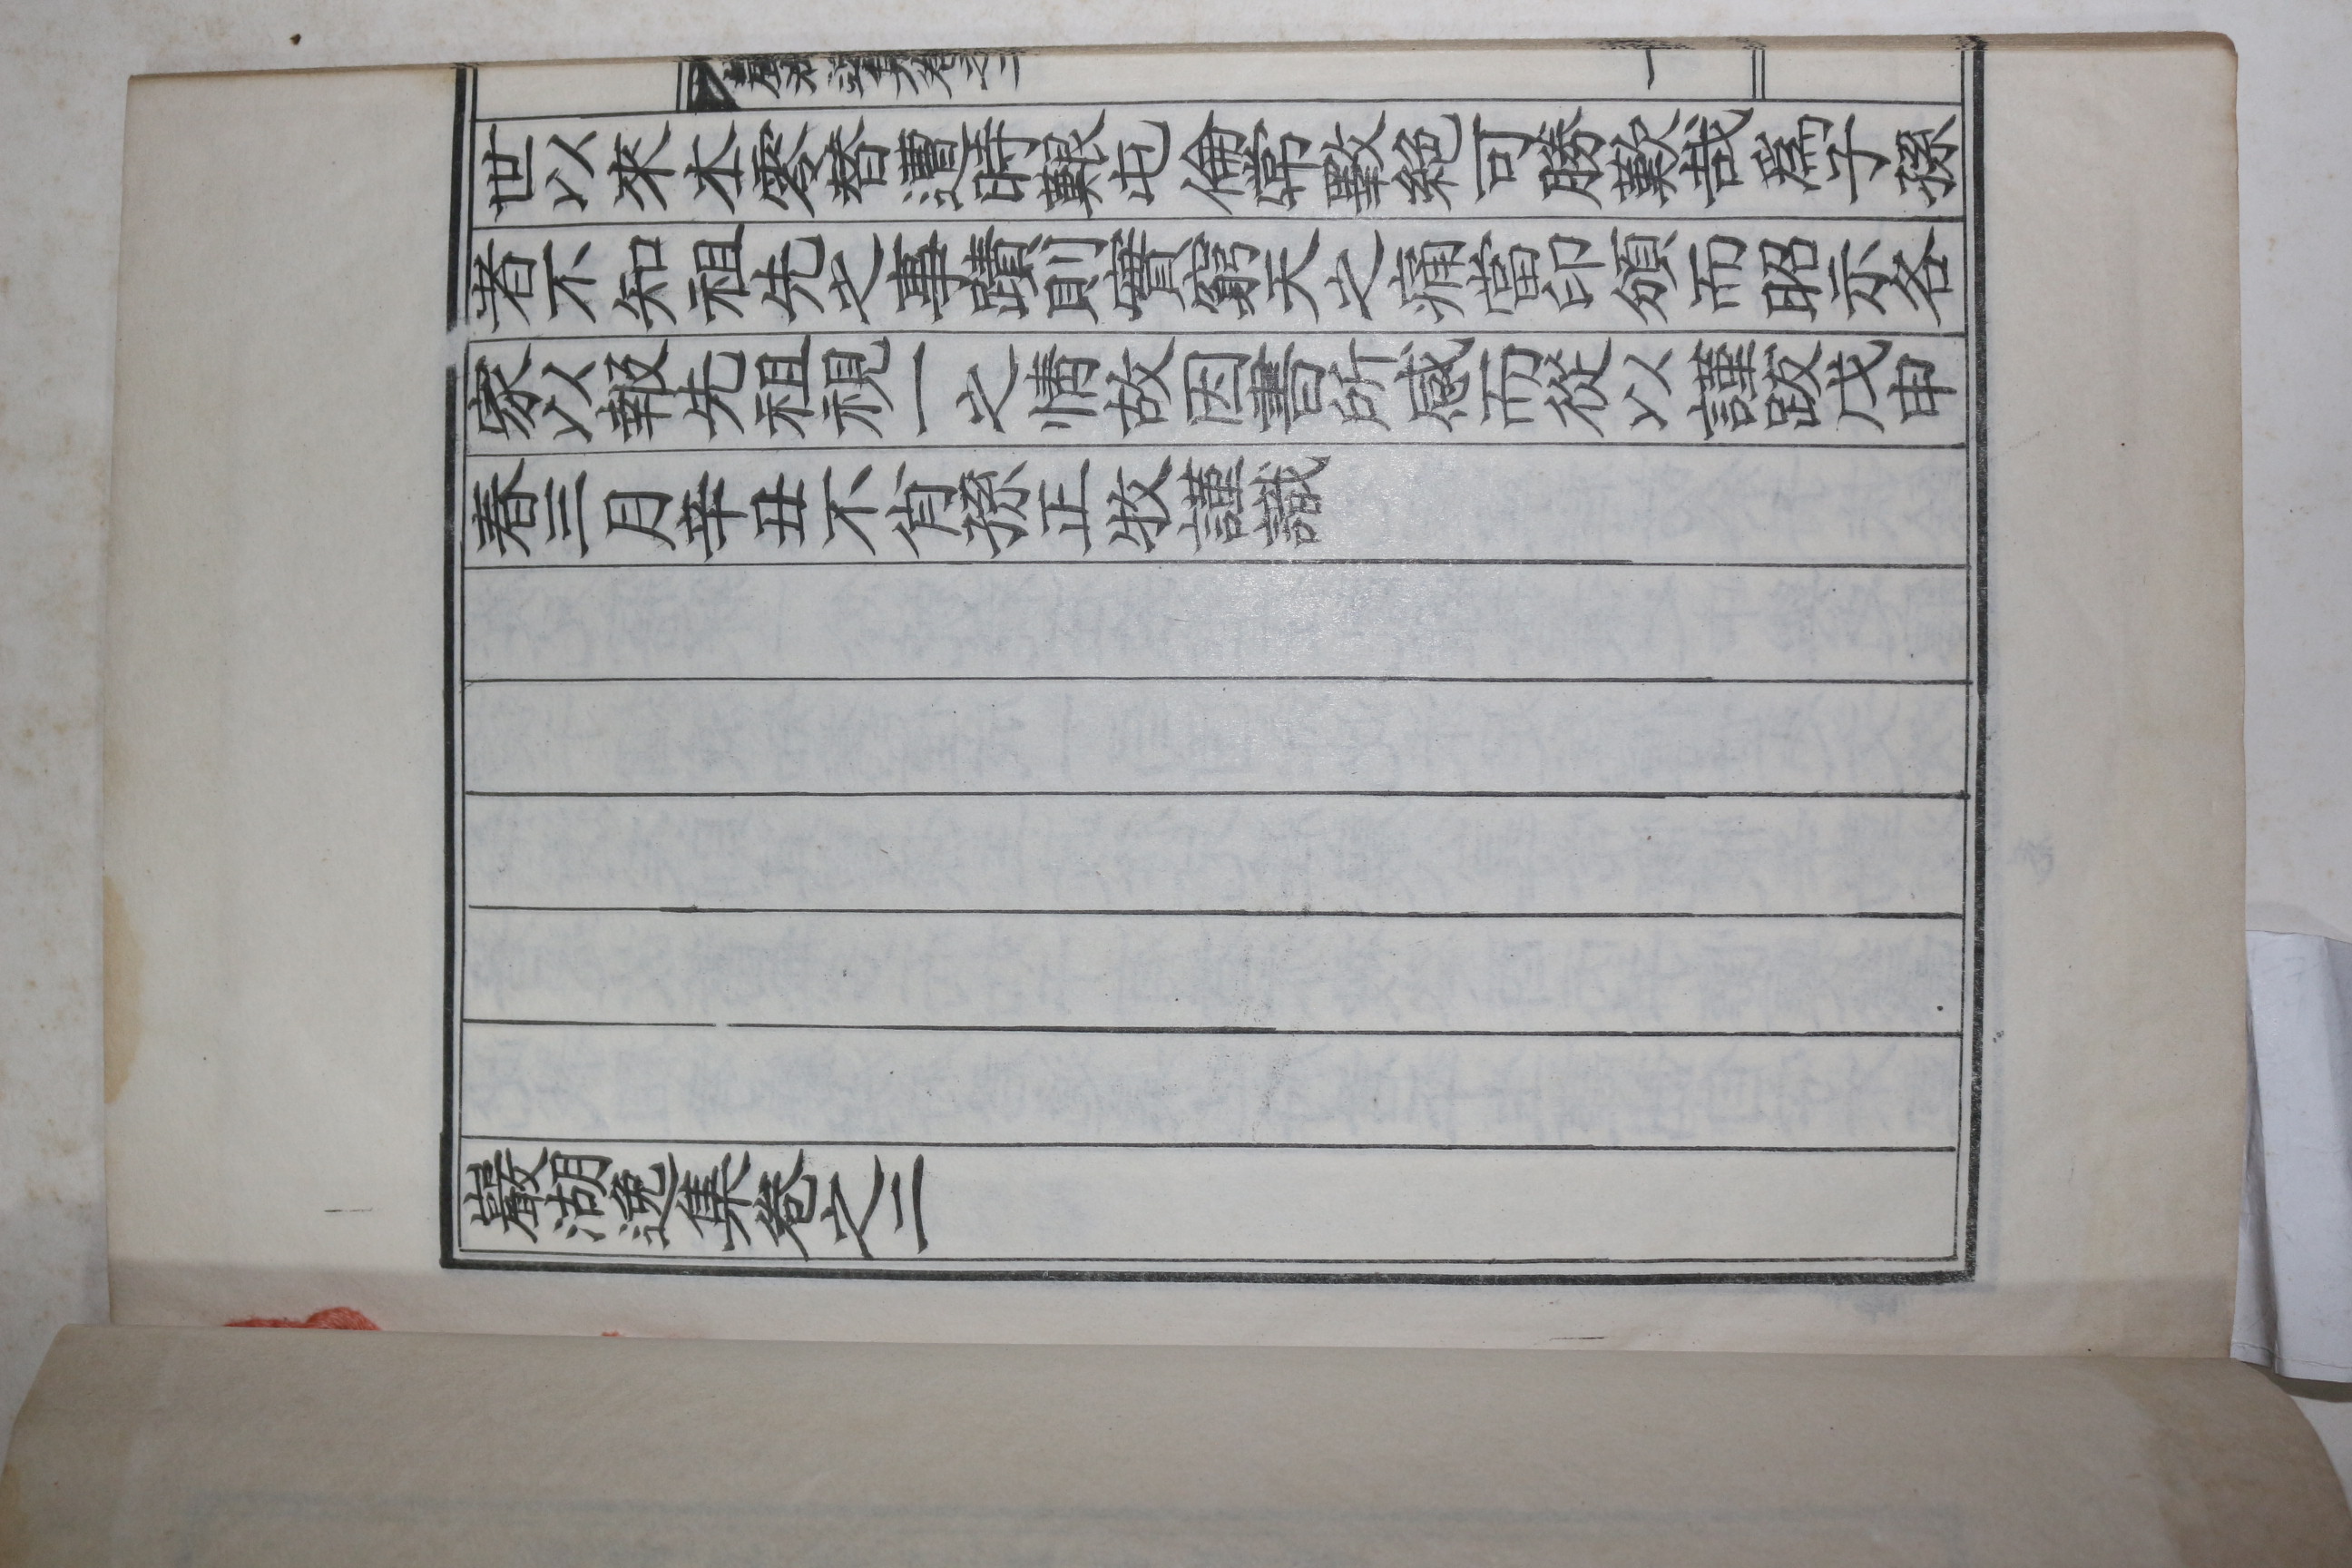 世以來本零替遭時艱屯倫常斁絶可勝歎哉爲子孫
者不知祖先之事蹟則實窮天之痛當印頒而昭示各
家以報先祖視一之情故因書所感而從以謹跋戊申
春三月辛丑不肖孫正牧謹識
巖湖逸集卷之二
巖湖逸集卷之二
一